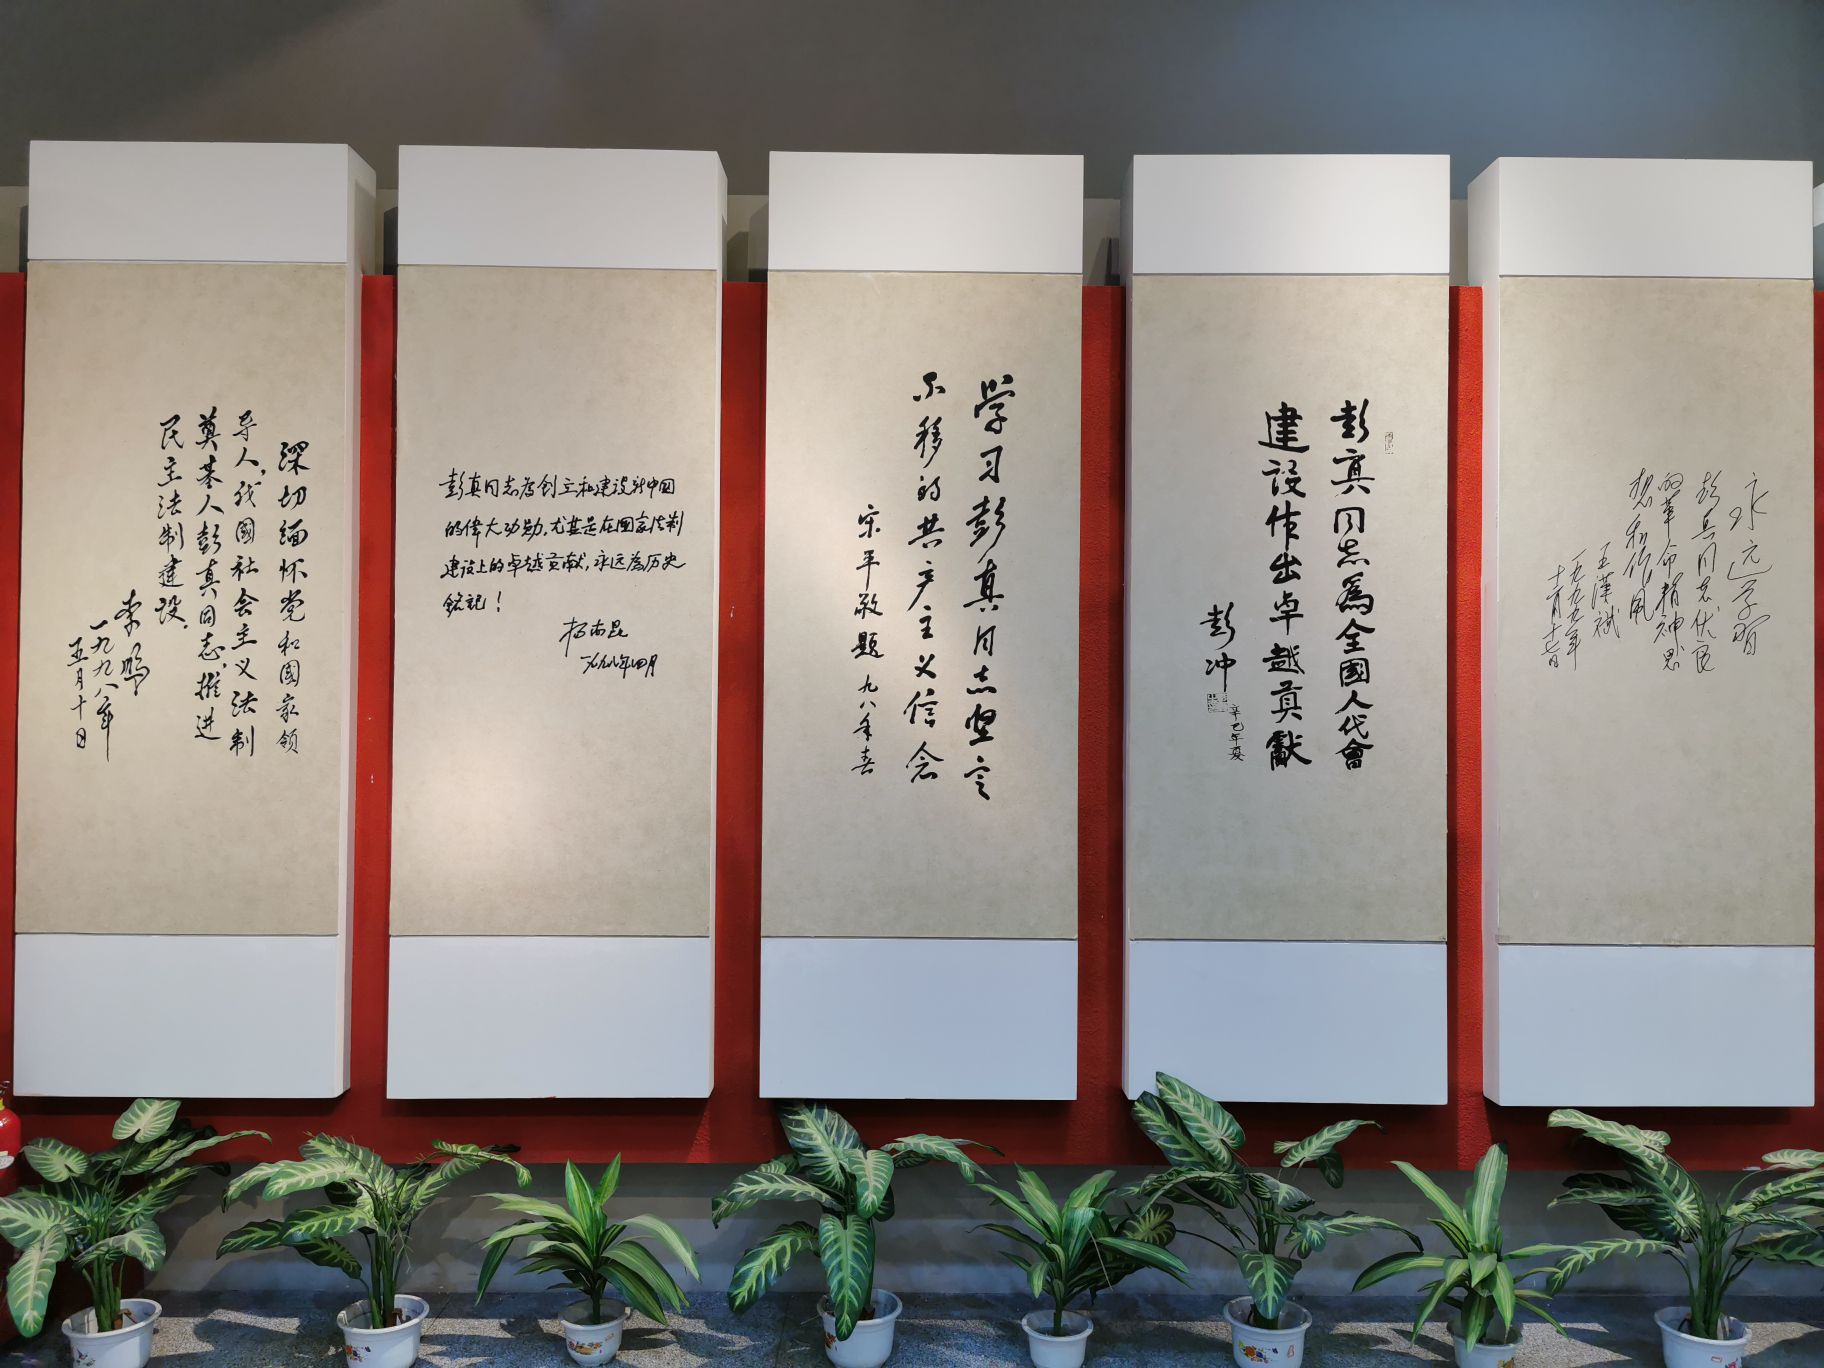 深切缅怀党和國家领
导人，我國社会主义法制
奠基人彭真同志，推进
民主法制建设。
李鹏
一九九八年
五月十日
彭真同志为创立和建设新中国
的偉大功勋，尤其是在国家法制
建设上的卓越贡献，永远为历史
銘记！
杨尚昆
一九九八年四月
学习彭真同志坚定
不移的共产主义信念
宋平敬题 九八年春
彭真同志為全國人代會
建设作出卓越貢獻
彭冲
辛巳年夏
永远学習
彭真同志优良
的革命精神思
想和作風
王漢斌
一九九九年